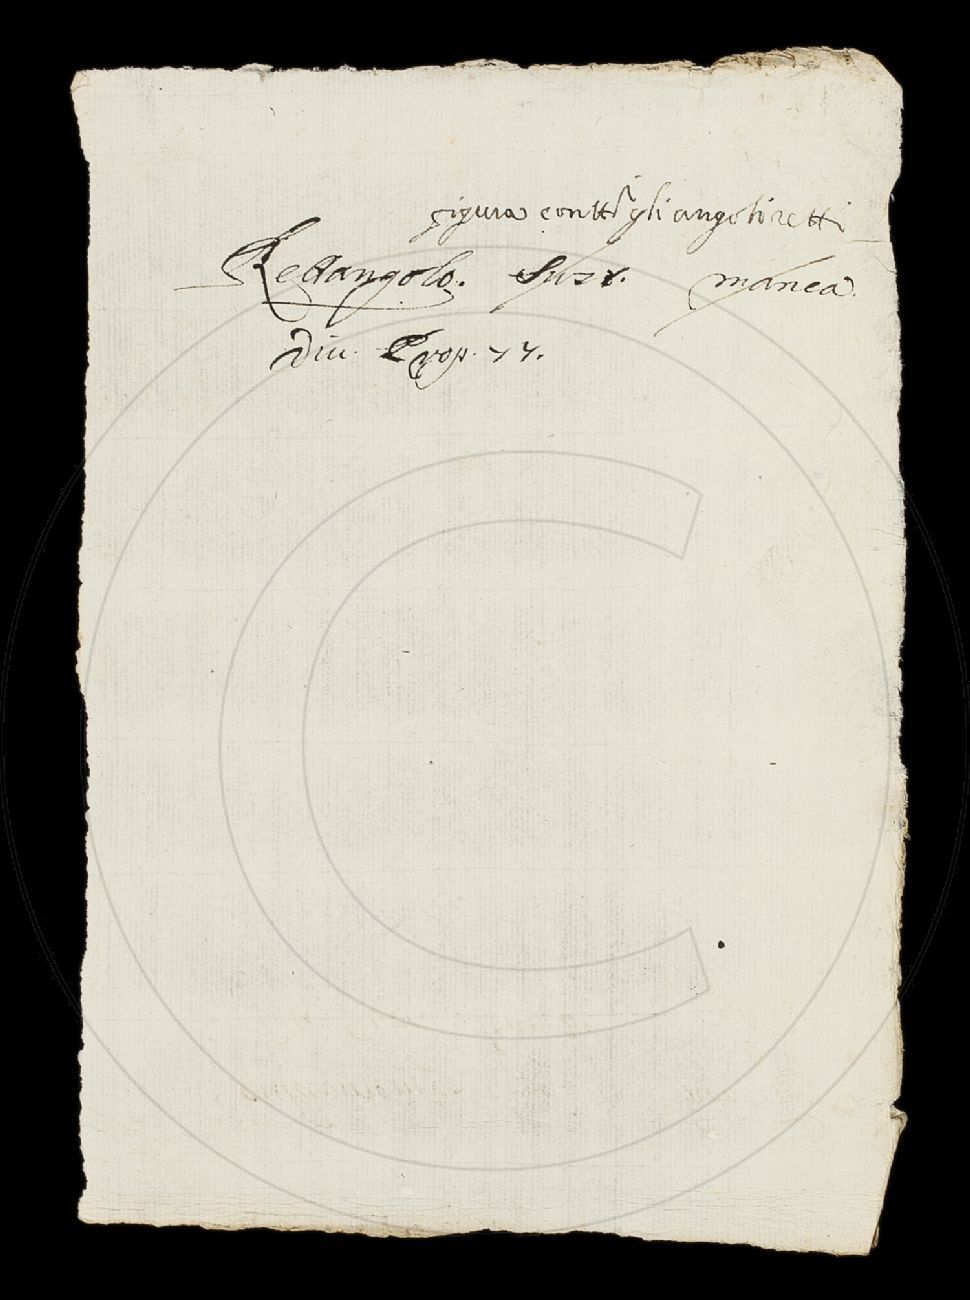 figura con tti gli angoli retti
Rettangolo. Sust. manca.
Diu. Prop. 77.